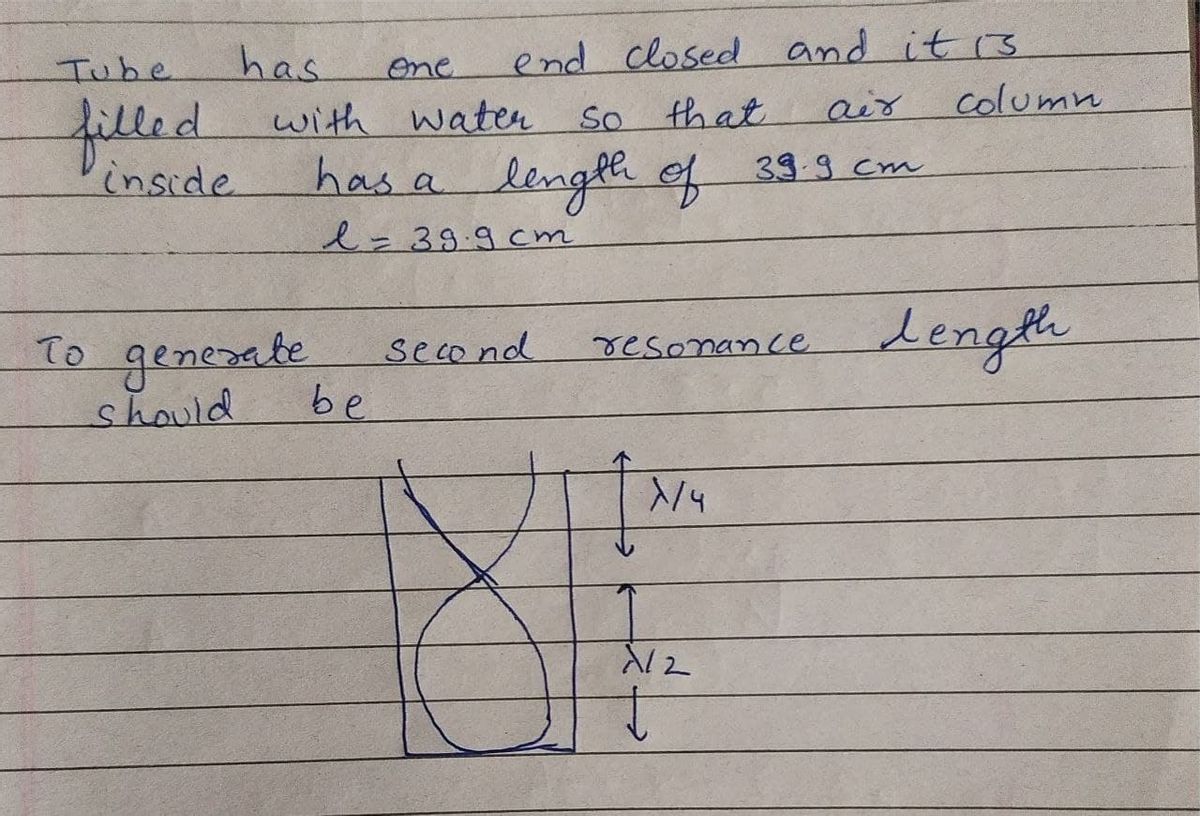 Tube has one end closed and it is
filled with water so that air column
inside has a length of 39.9 cm
l = 39.9 cm
To generate second resonance length
should be
λ/4
λ/2